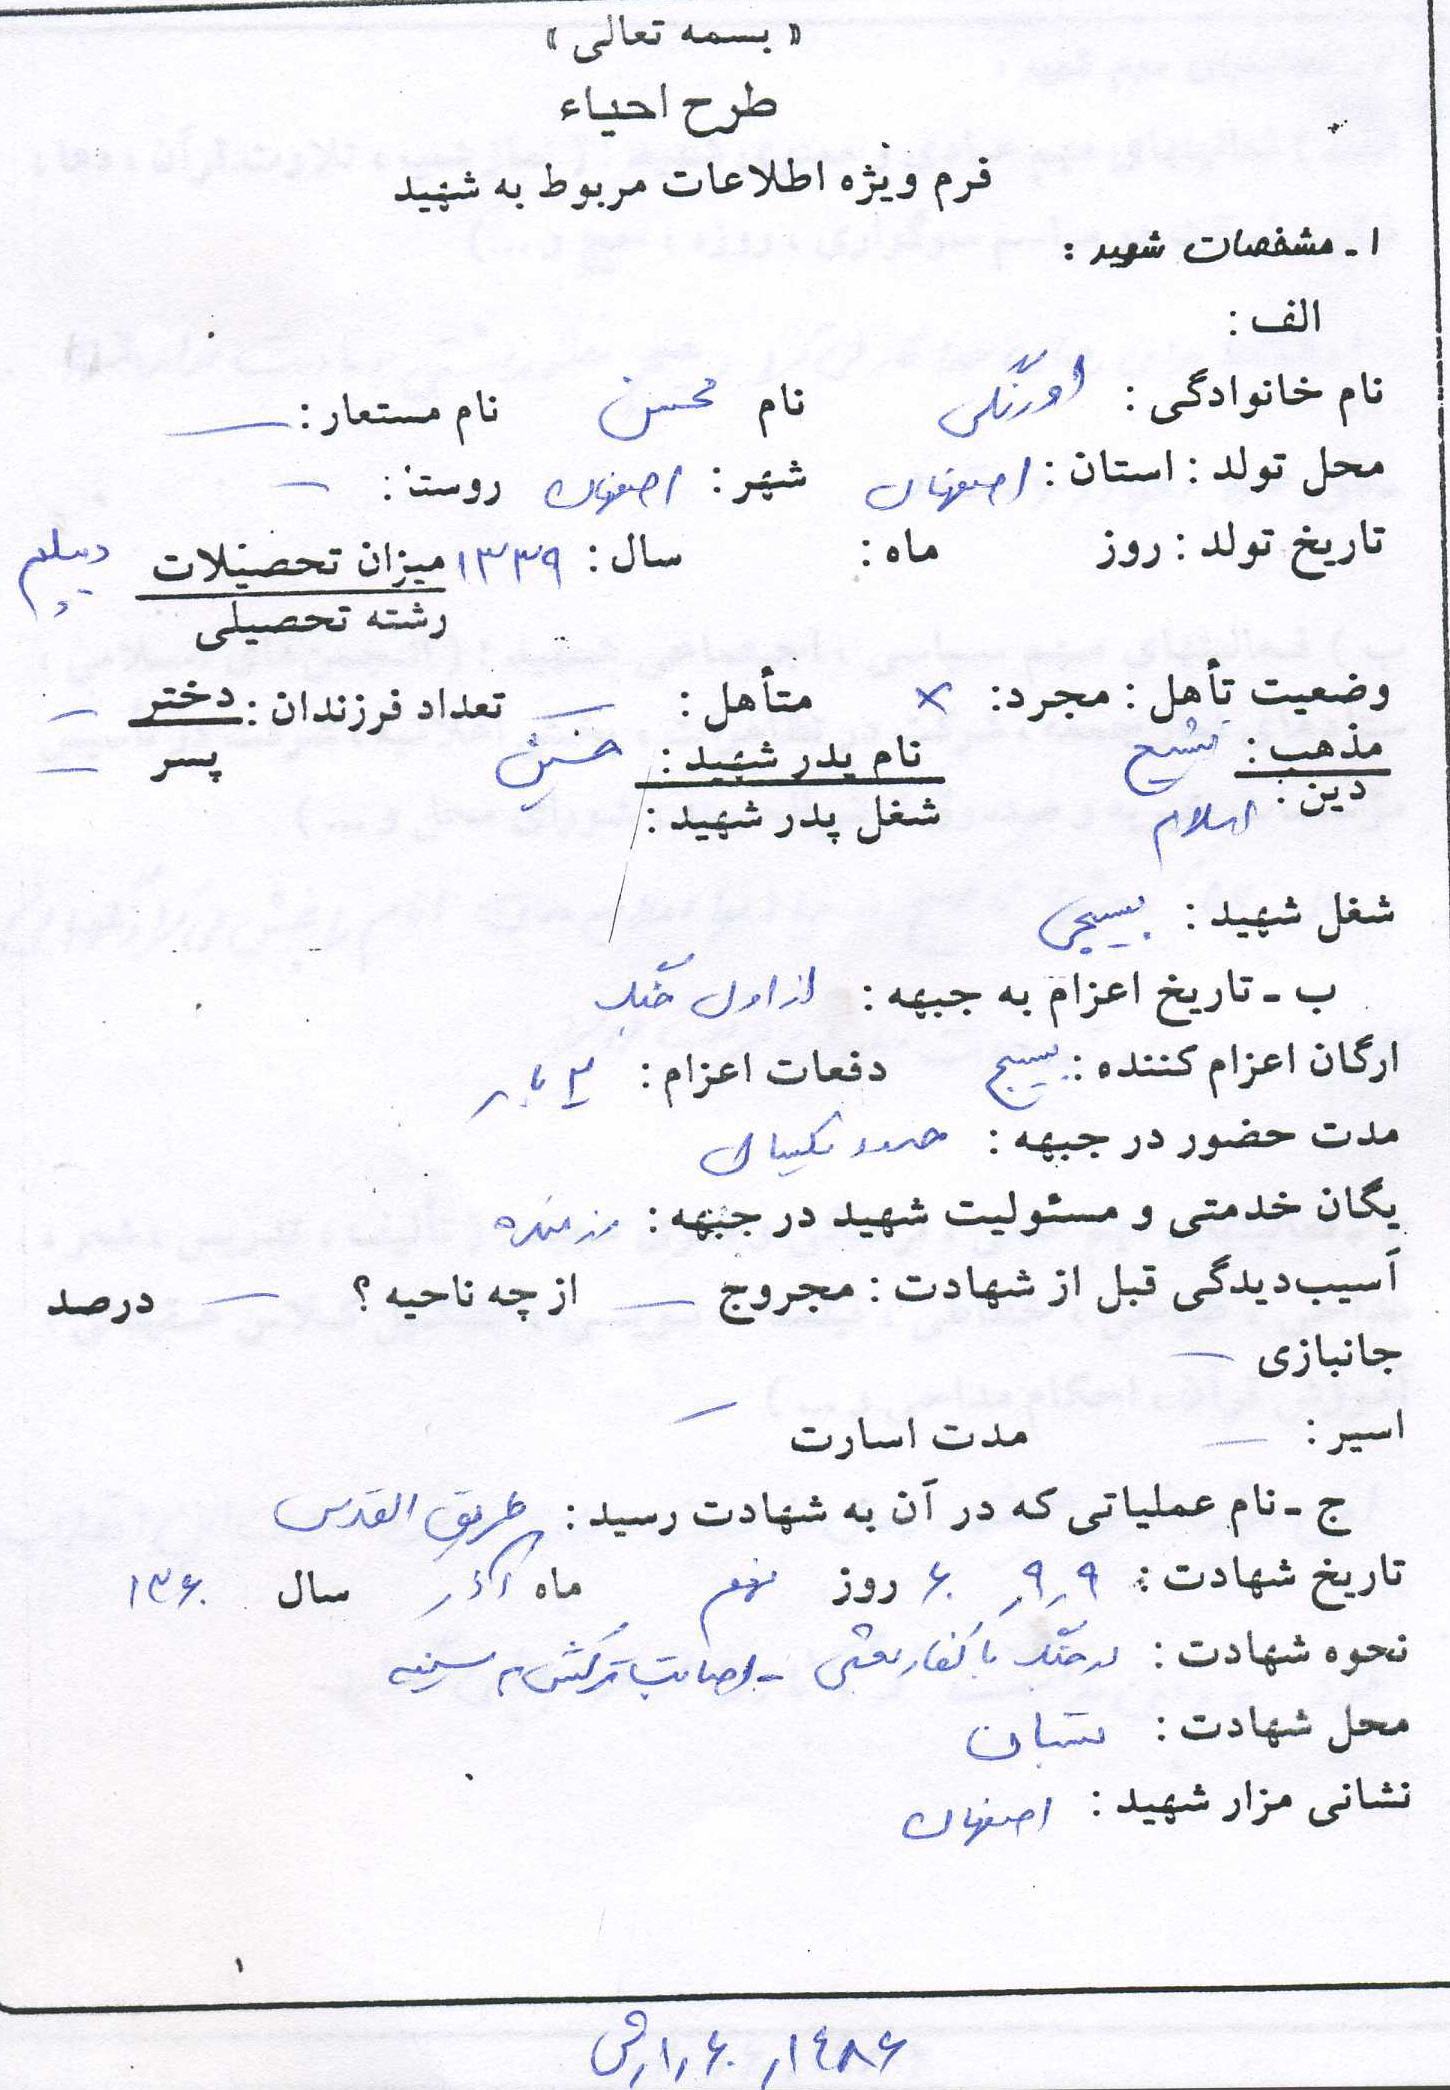 « بسمه تعالی »
طرح احیاء
فرم ویژه اطلاعات مربوط به شهید
۱ ـ مشخصات شهید :
الف :
نام خانوادگی : اورنگی نام محسن نام مستعار : ــ
محل تولد : استان : اصفهان شهر : اصفهان روستا : ــ
تاریخ تولد : روز ماه : سال : ۱۳۳۹ میزان تحصیلات دیپلم
رشته تحصیلی
وضعیت تأهل : مجرد : × متأهل : ــ تعداد فرزندان : دختر ــ
مذهب : تشیع نام پدر شهید : حسین پسر ــ
دین : اسلام شغل پدر شهید :
شغل شهید : بسیجی
ب ـ تاریخ اعزام به جبهه : از اول جنگ
ارگان اعزام کننده : بسیج دفعات اعزام : ۳ بار
مدت حضور در جبهه : حدود یکسال
یگان خدمتی و مسئولیت شهید در جبهه : رزمنده
آسیب‌دیدگی قبل از شهادت : مجروح ــ از چه ناحیه ؟ ــ درصد
جانبازی ــ
اسیر : ــ مدت اسارت ــ
ج ـ نام عملیاتی که در آن به شهادت رسید : طریق القدس
تاریخ شهادت : ۹ر۹ر۶۰ روز نهم ماه آذر سال ۱۳۶۰
نحوه شهادت : در جنگ با کفار بعثی ـ اصابت ترکش به سینه
محل شهادت : بستان
نشانی مزار شهید : اصفهان
۱